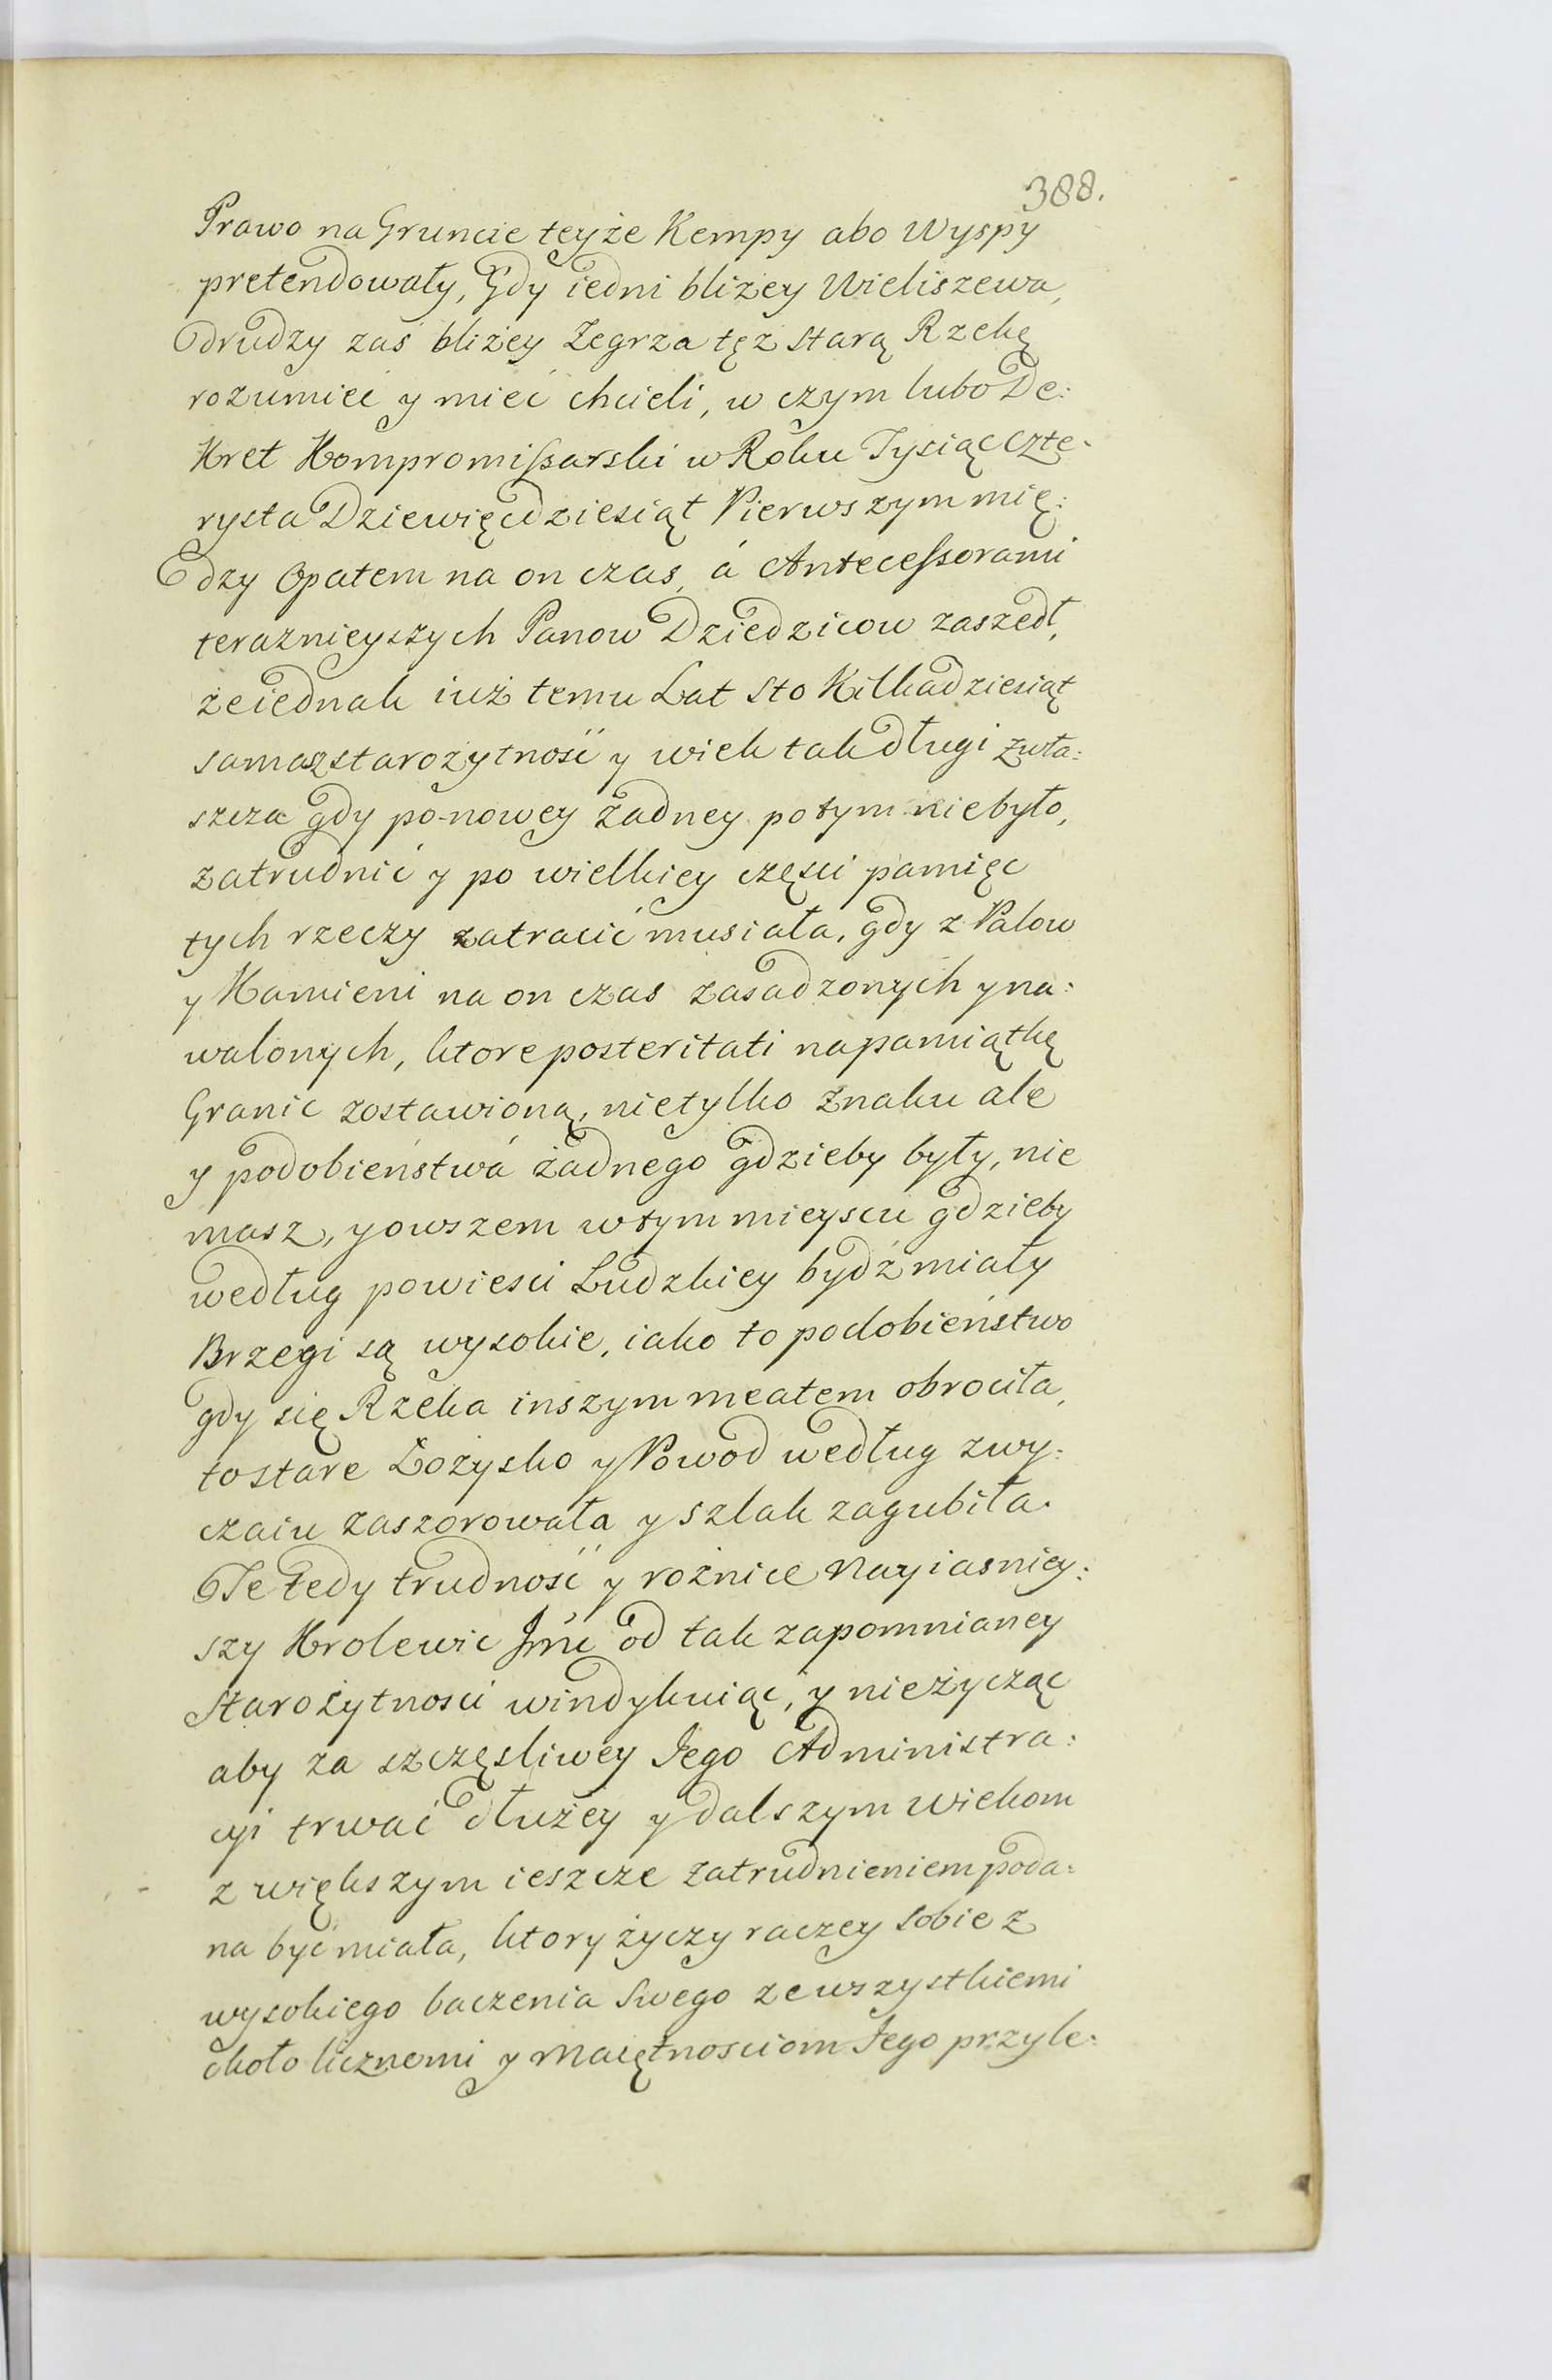 388.
Prawo na Gruncie teyże Kempy abo Wyspy
pretendowały, Gdy iedni bliżey Wieliszewa,
drudzy zaś bliżey Zegrza tęż starą Rzekę
rozumieć y mieć chcieli, w czym lubo De:
kret Kompromissarski w Roku Tysiąc Czte:
rysta Dziewięćdziesiąt Pierwszym mię:
dzy Opatem na on czas, á Antecessorami
teraznieyszych Panow Dziedzicow zaszedł,
że iednak iuż temu Lat Sto Kilkadziesiąt
sama starożytność y wiek tak długi zwła:
szcza gdy po-nowey żadney potym niebyło,
zatrudnić y po wielkiey częsci pamięc
tych rzeczy zatracić musiała, gdy z Palow
y Kamieni na on czas zasadzonych y na:
walonych, ktore posteritati napamiątkę
Granic zostawioną, nietylko znaku ale
y podobieństwá żadnego gdzieby były, nie
masz, y owszem w tym mieyscu gdzieby
według powiesci Ludzkiey bydź miały
Brzegi są wysokie, iako to podobieństwo
gdy się Rzeka inszym meatem obrociła,
to stare Łożysko y Powod według zwy:
czaiu zaszorowała y szlak zagubiła.
Te tedy trudność y rożnice Nayiasniey:
szy Krolewic Jmć od tak zapomnianey
Starożytnosci windykuiąc, y nieżycząc
aby za szczęsliwey Jego Administra:
cyi trwać dłużey y dalszym Wiekom
z większym ieszcze zatrudnieniem poda:
na być miała, ktory życzy raczey sobie z
wysokiego baczenia Swego ze wszystkiemi
około licznemi y Maiętnosciom Jego przyle: